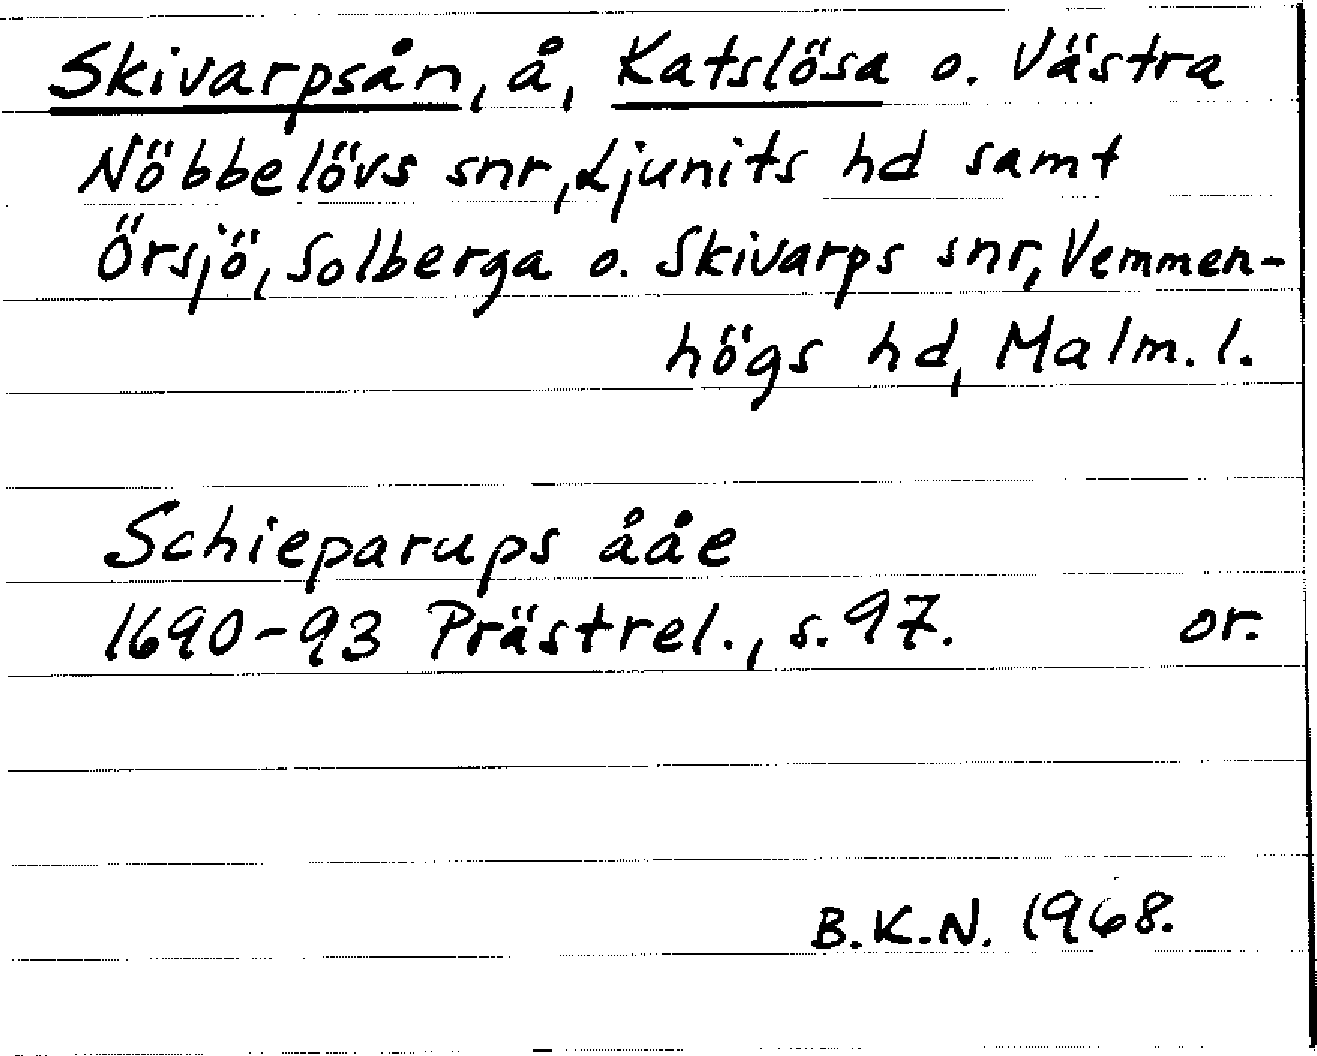 Skivarpsån, å, Katslösa o. Västra
Nöbbelövs snr, Ljunits hd samt
Örsjö, Solberga o. Skivarps snr, Vemmen-
högs hd, Malm. l.
Schieparups ååe
1690-93 Prästrel., s. 97. or.
B.K.N. 1968.